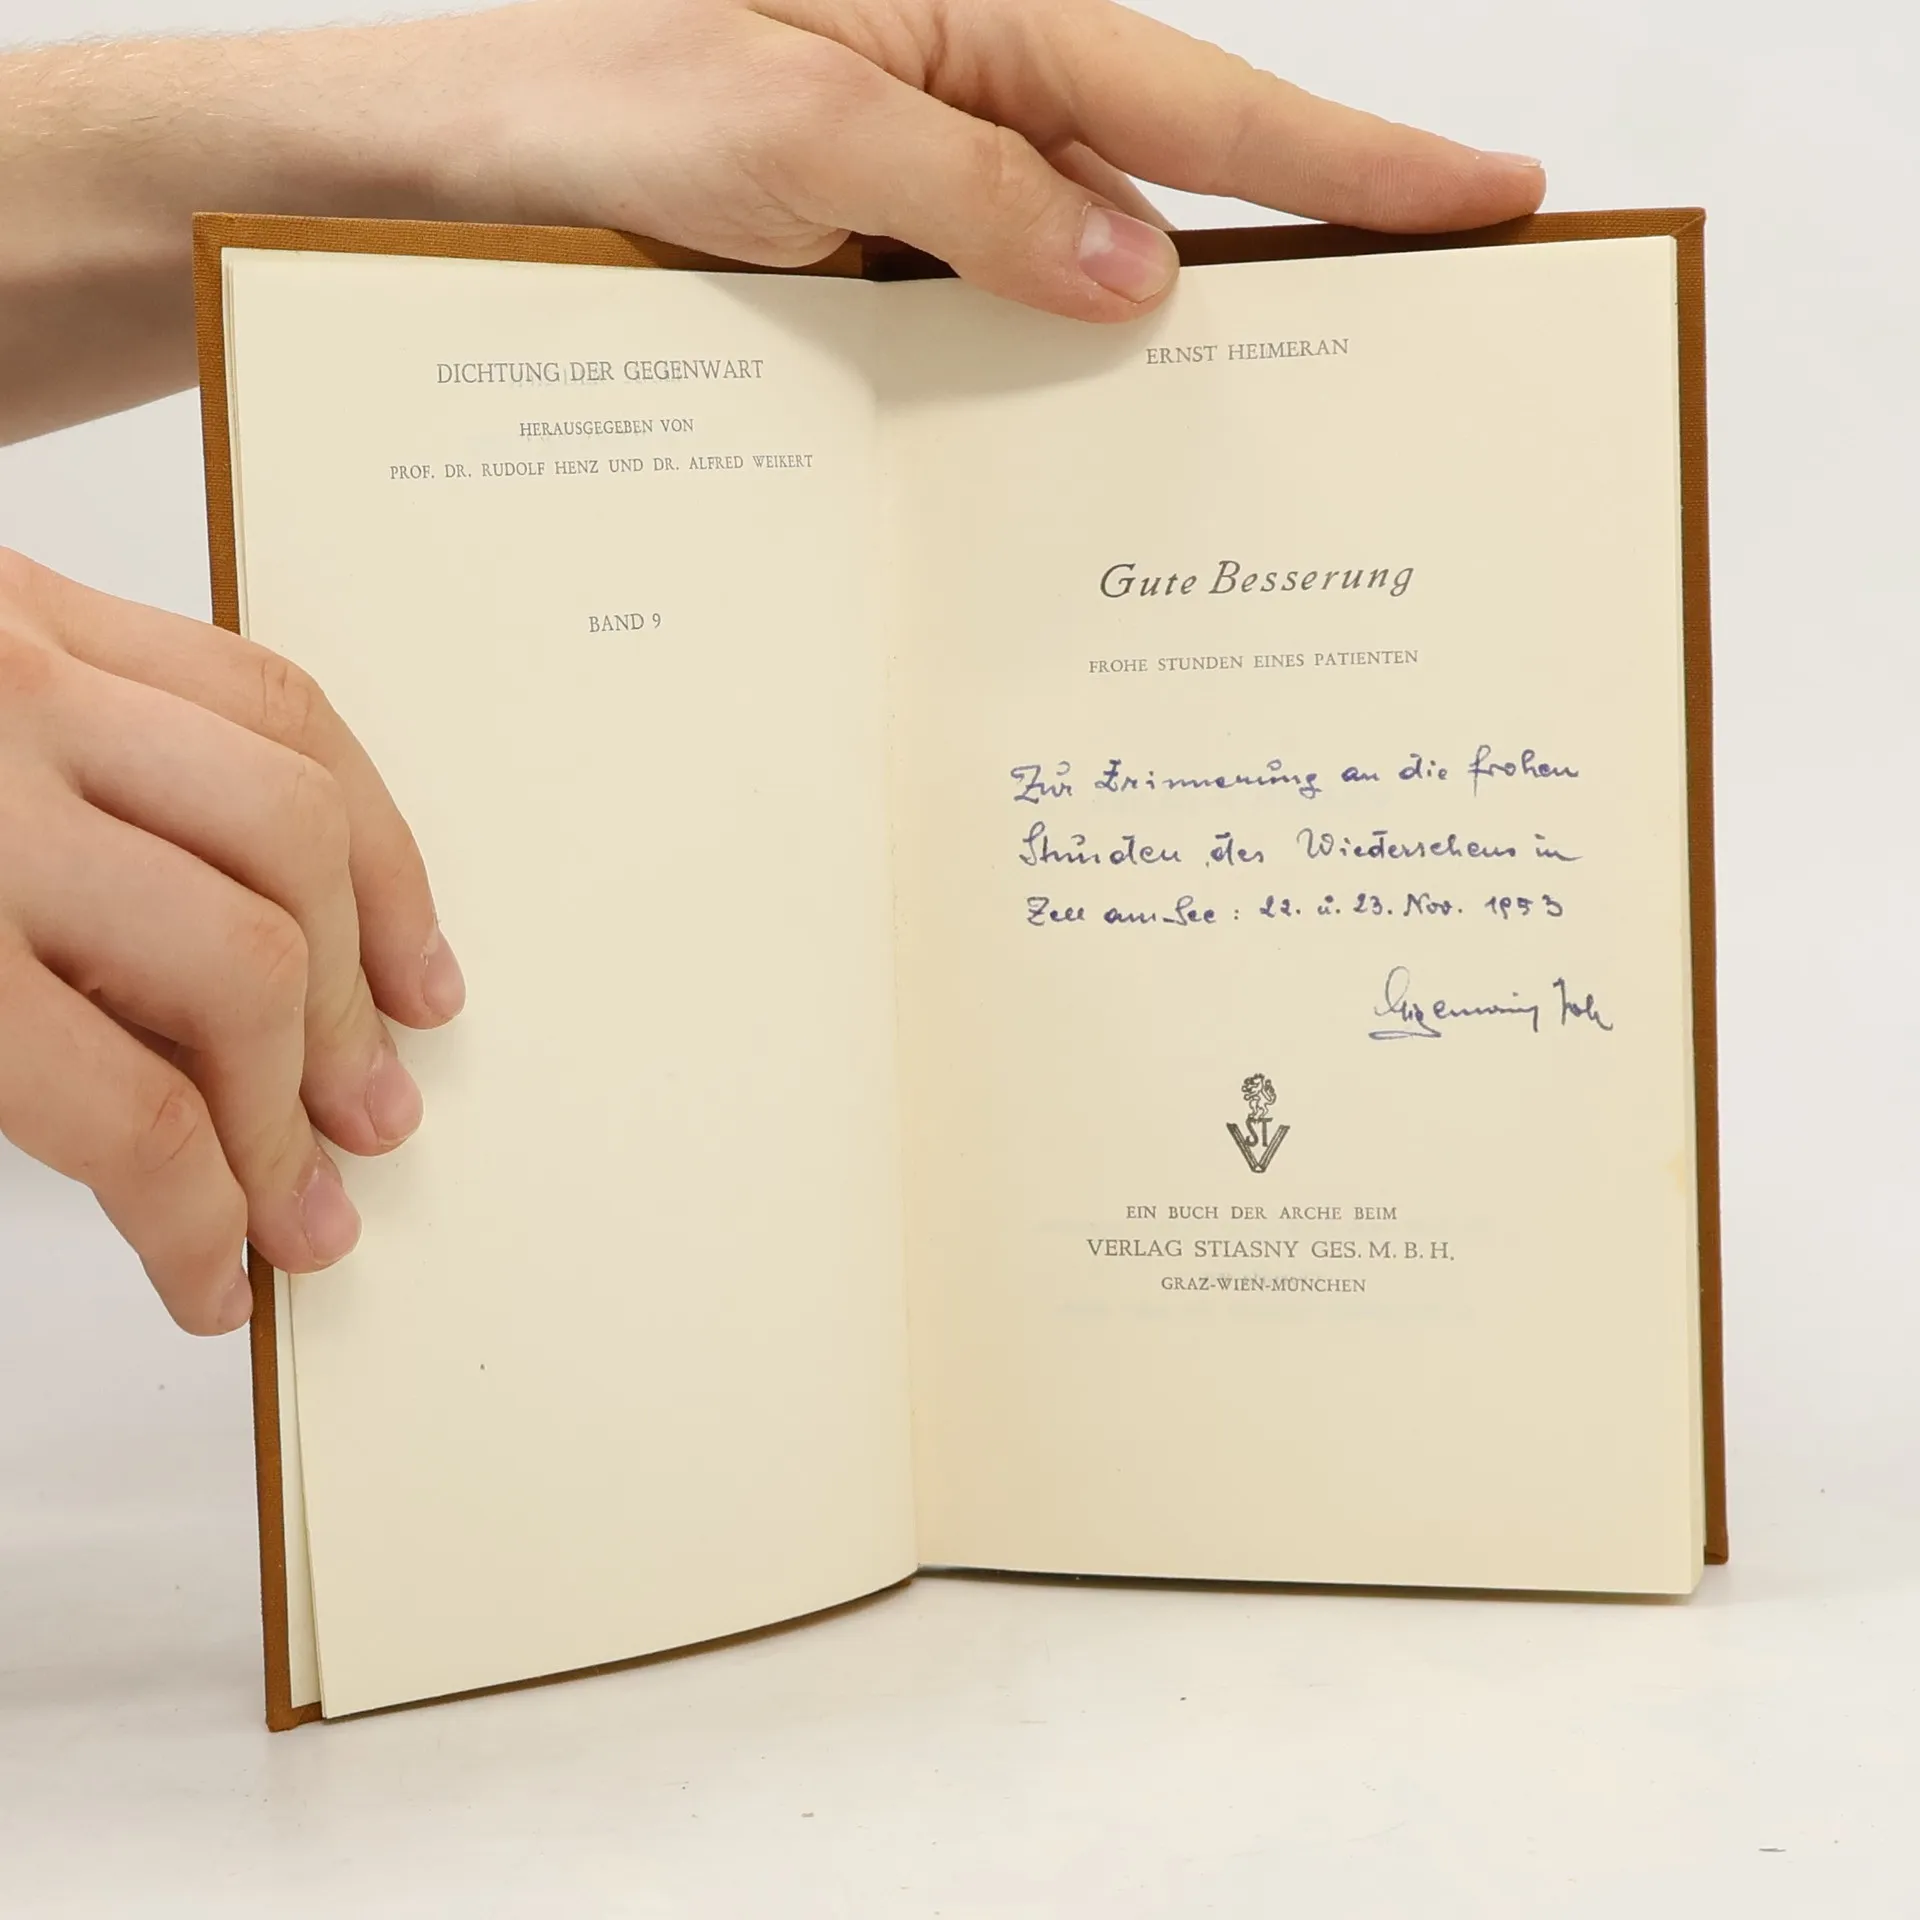 DICHTUNG DER GEGENWART
HERAUSGEGEBEN VON
PROF. DR. RUDOLF HENZ UND DR. ALFRED WEIKERT
BAND 9
ERNST HEIMERAN
Gute Besserung
FROHE STUNDEN EINES PATIENTEN
Zur Erinnerung an die frohen
Stunden des Wiedersehens in
Zell am See : 22. u. 23. Nov. 1953
ST
V
EIN BUCH DER ARCHE BEIM
VERLAG STIASNY GES. M. B. H.
GRAZ-WIEN-MÜNCHEN